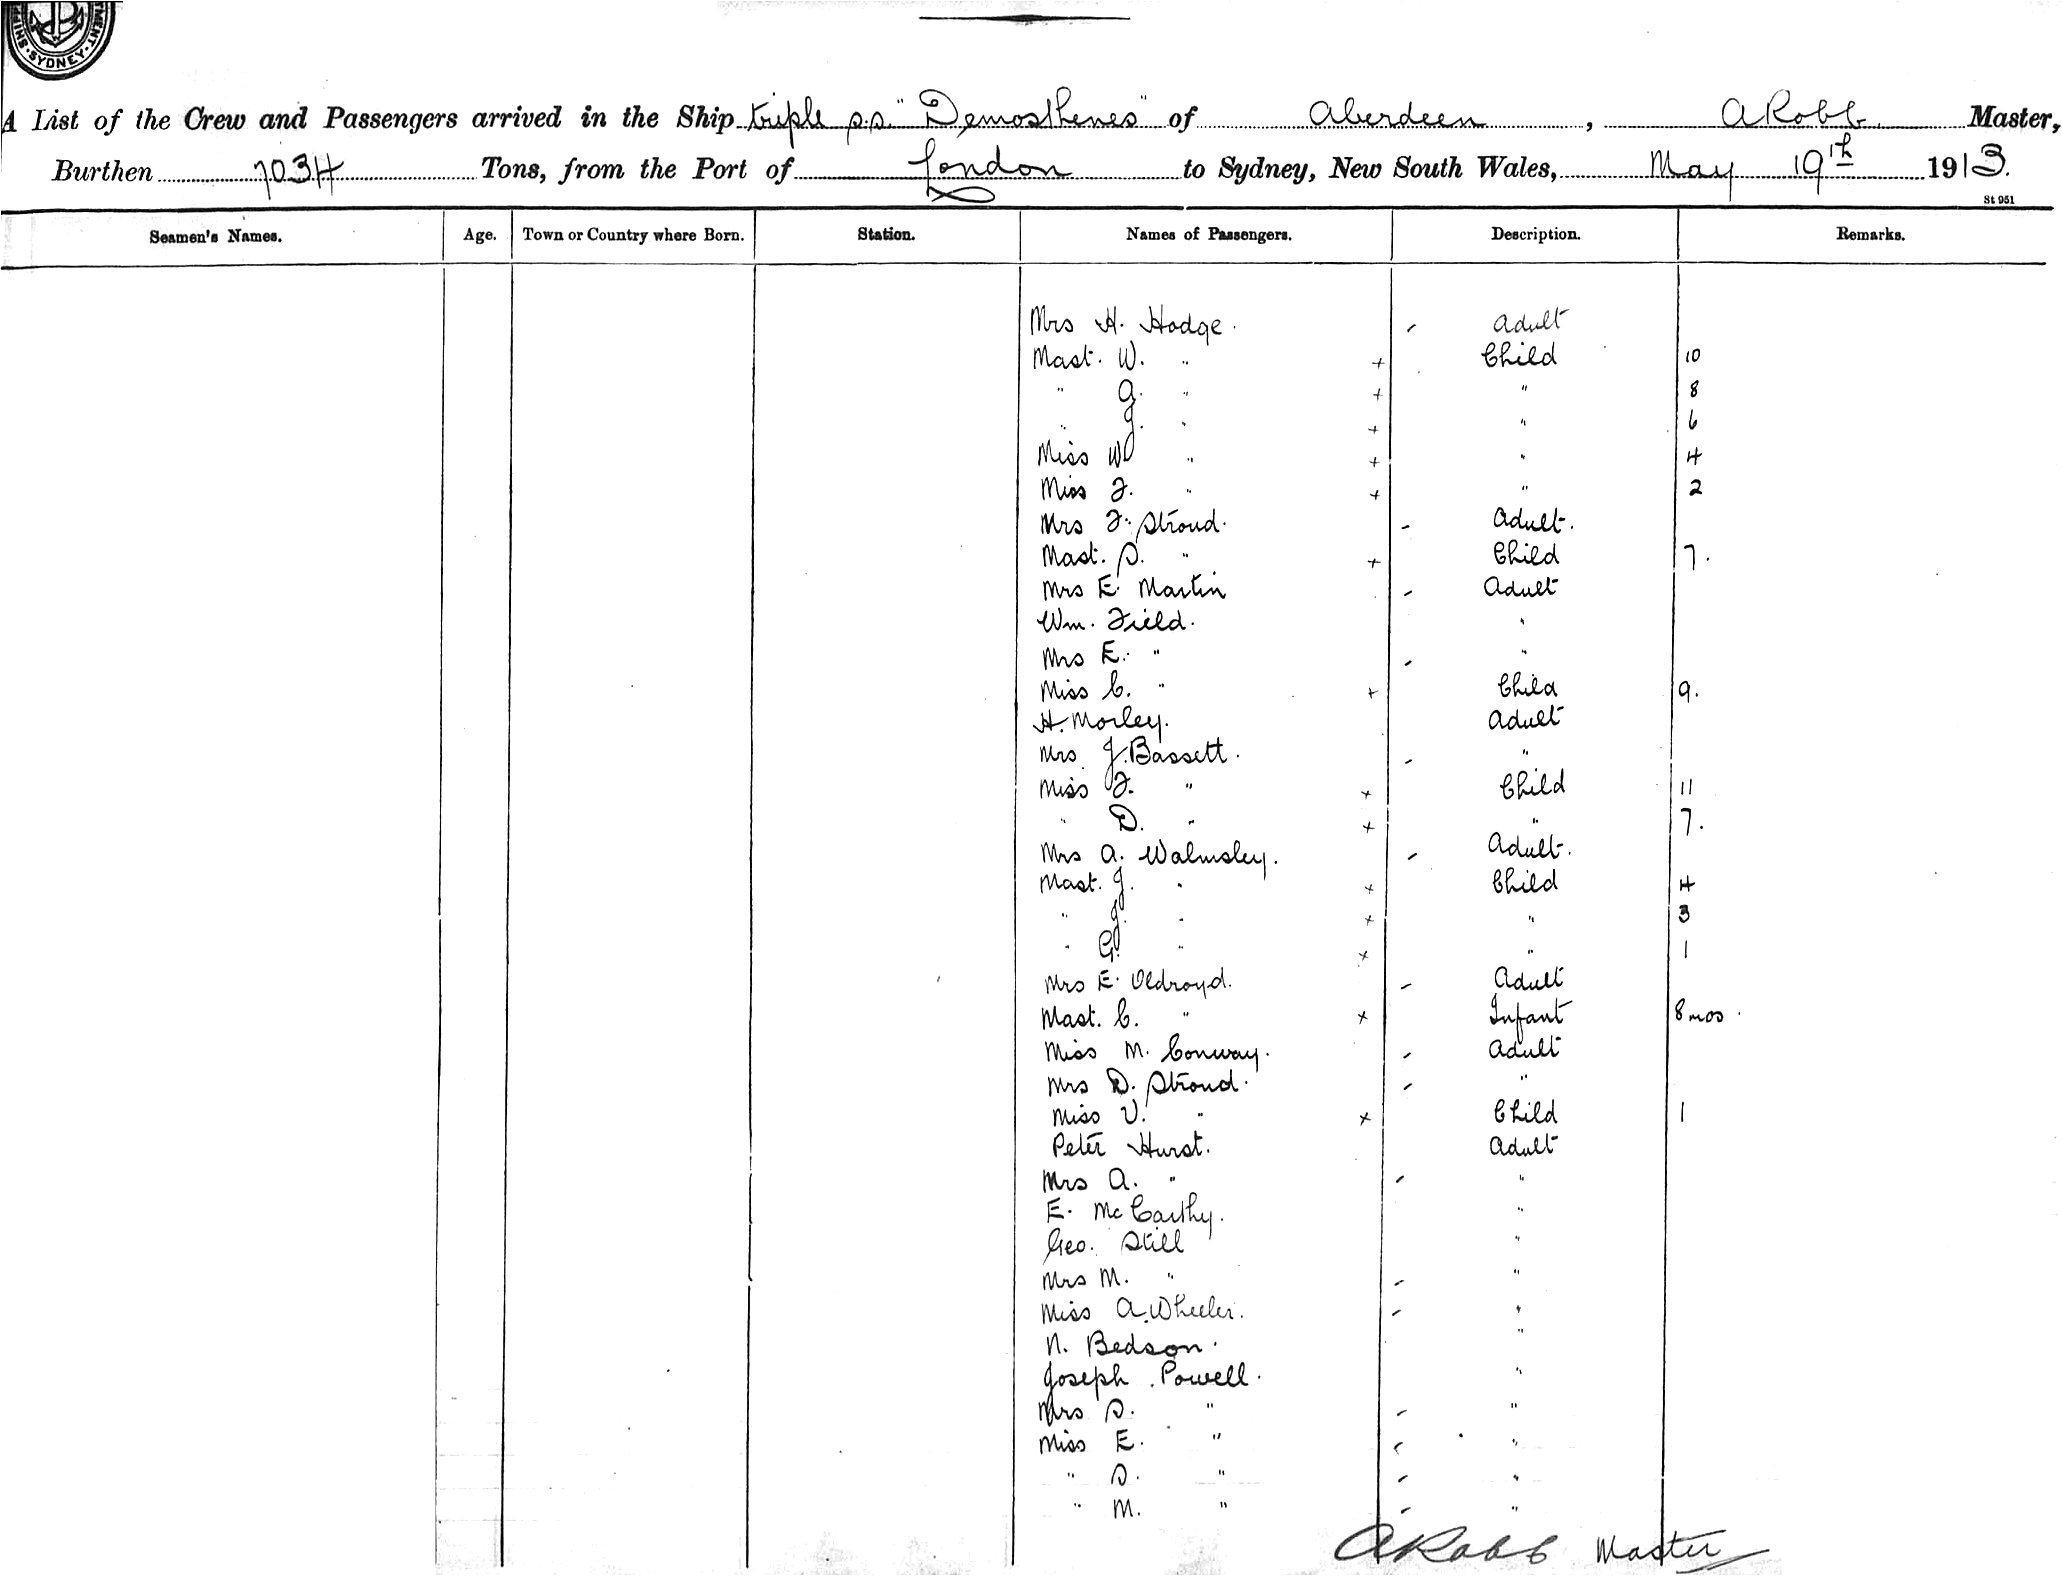 SHIP MENT · SYDNEY ·
A List of the Crew and Passengers arrived in the Ship triple s.s. "Demosthenes" of Aberdeen, A Robb Master,
Burthen 7034 Tons, from the Port of London to Sydney, New South Wales, May 19th 1913.
St 951
Seamen's Names. Age. Town or Country where Born. Station. Names of Passengers. Description. Remarks.
Mrs H. Hodge. - Adult
Mast. W. " + Child 10
" A. " + " 8
" J. " + " 6
Miss W " + " 4
Miss F. " + " 2
Mrs F. Stroud. - Adult.
Mast. S. " + Child 7.
Mrs E. Martin - Adult
Wm. Field. "
Mrs E. " - "
Miss C. " + Child 9.
H. Morley. Adult
Mrs J. Bassett. - "
Miss F. " + Child 11
" D. " + " 7.
Mrs A. Walmsley. - Adult.
Mast. J. " + Child 4
" J. " + " 3
" G. " + " 1
Mrs E. Oldroyd. - Adult
Mast. C. " + Infant 8 mos.
Miss M. Conway. - Adult
Mrs D. Stroud. - "
Miss V. " + Child 1
Peter Hurst. Adult
Mrs A. " - "
E. McCarthy. "
Geo. Still "
Mrs M. " - "
Miss A. Wheeler. - "
N. Bedson. "
Joseph Powell. "
Mrs S. " - "
Miss E. " - "
" S. " - "
" M. " - "
A Robb Master